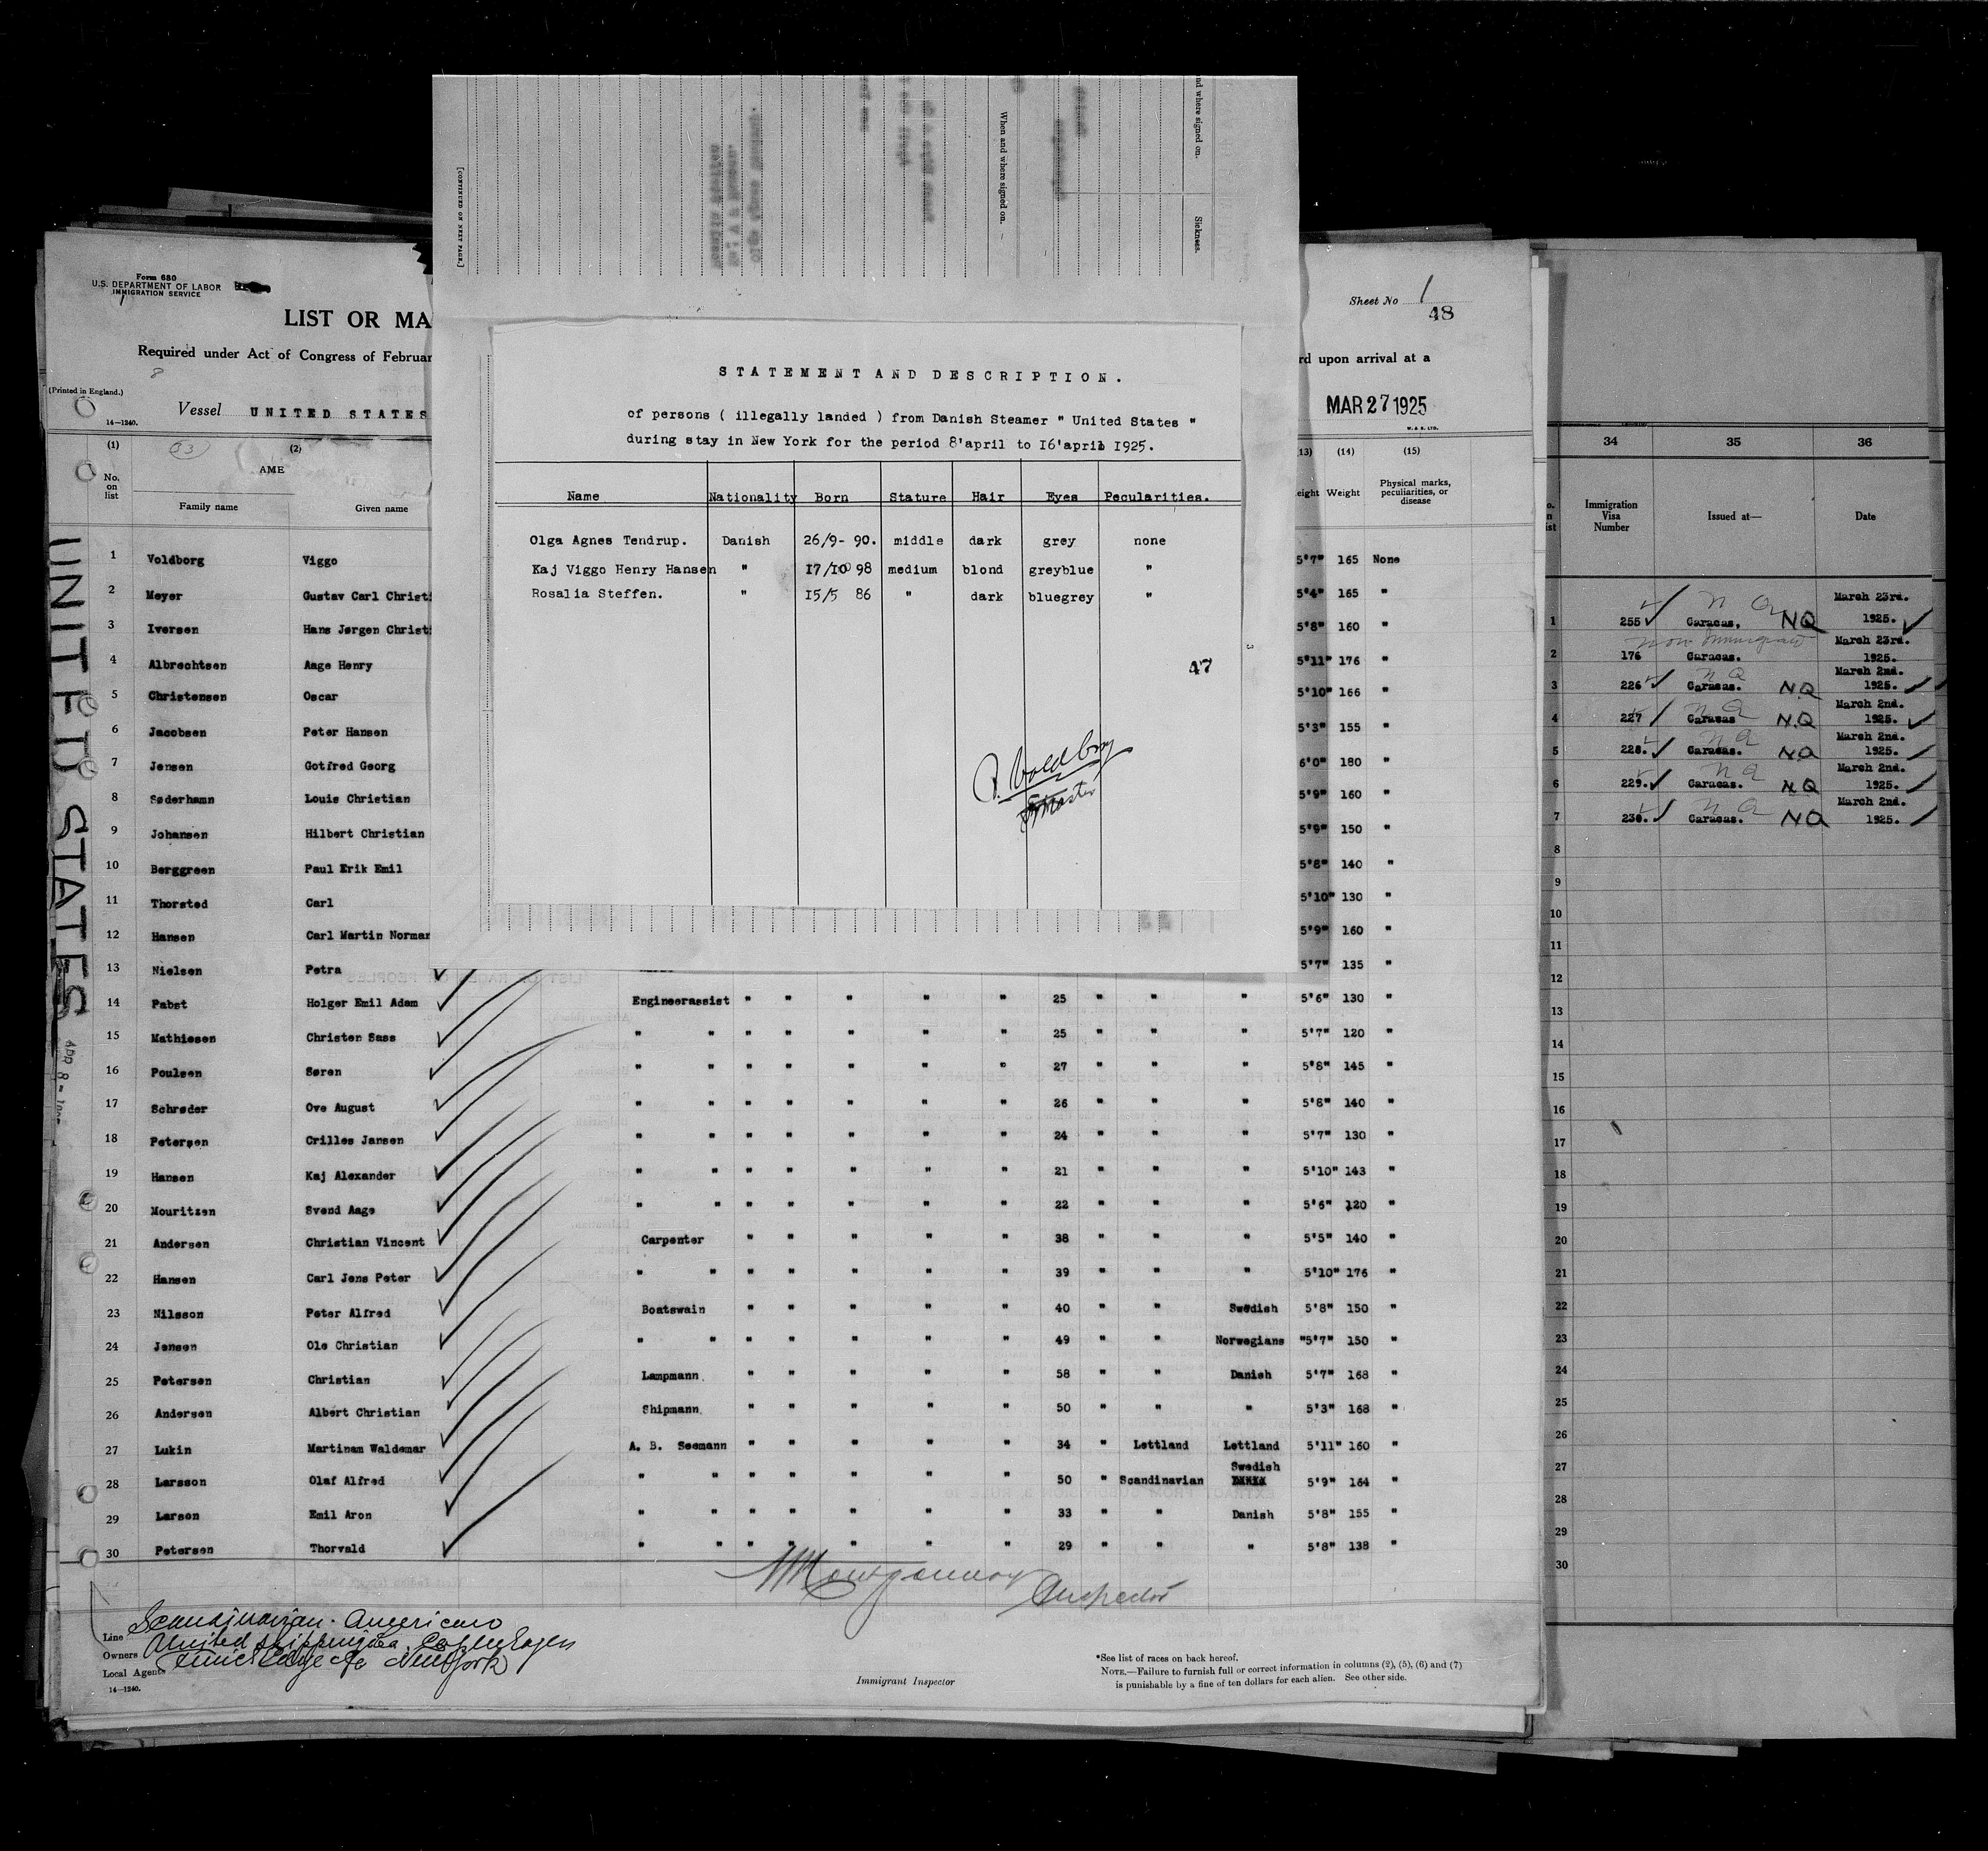 [CONTINUED ON NEXT PAGE.]
When and where signed on.
nd where signed on.
Sickness.
Form 680
U.S. DEPARTMENT OF LABOR
IMMIGRATION SERVICE
LIST OR MA
Required under Act of Congress of Februar
(Printed in England.)
Vessel UNITED STATES
14—1240.
Sheet No 1
48
rd upon arrival at a
MAR 27 1925
W. & S. LTD.
STATEMENT AND DESCRIPTION.
of persons ( illegally landed ) from Danish Steamer " United States "
during stay in New York for the period 8'april to 16'april 1925.
Name Nationality Born Stature Hair Eyes Pecularities.
Olga Agnes Tendrup. Danish 26/9- 90. middle dark grey none
Kaj Viggo Henry Hansen " 17/10 98 medium blond greyblue "
Rosalia Steffen. " 15/5 86 " dark bluegrey "
47
Master
(1) (2) 93
AME
No. on list Family name Given name
(13) (14) (15)
eight Weight Physical marks, peculiarities, or disease
1 Voldborg Viggo 5'7" 165 None
2 Meyer Gustav Carl Christi 5'4" 165 "
3 Iversen Hans Jørgen Christi 5'8" 160 "
4 Albrechtsen Aage Henry 5'11" 176 "
5 Christensen Oscar 5'10" 166 "
6 Jacobsen Peter Hansen 5'3" 155 "
7 Jensen Gotfred Georg 6'0" 180 "
8 Søderhamn Louis Christian 5'9" 160 "
9 Johansen Hilbert Christian 5'9" 150 "
10 Berggreen Paul Erik Emil 5'8" 140 "
11 Thorsted Carl 5'10" 130 "
12 Hansen Carl Martin Norman 5'9" 160 "
13 Nielsen Petra 5'7" 135 "
14 Pabst Holger Emil Adam Engineerassist " " " " " 25 " " " 5'6" 130 "
15 Mathiesen Christen Sass " " " " " " " 25 " " " 5'7" 120 "
16 Poulsen Søren " " " " " " " 27 " " " 5'8" 145 "
17 Schrøder Ove August " " " " " " " 26 " " " 5'8" 140 "
18 Petersen Crilles Jansen " " " " " " " 24 " " " 5'7" 130 "
19 Hansen Kaj Alexander " " " " " " " 21 " " " 5'10" 143 "
20 Mouritzen Svend Aage " " " " " " " 22 " " " 5'6" 120 "
21 Andersen Christian Vincent Carpenter " " " " " 38 " " " 5'5" 140 "
22 Hansen Carl Jens Peter " " " " " " " 39 " " " 5'10" 176 "
23 Nilsson Peter Alfred Boatswain " " " " " 40 " " Swedish 5'8" 150 "
24 Jensen Ole Christian " " " " " " " 49 " " Norwegians "5'7" 150 "
25 Petersen Christian Lampmann " " " " " 58 " " Danish 5'7" 168 "
26 Andersen Albert Christian Shipmann " " " " " 50 " " " 5'3" 168 "
27 Lukin Martinam Waldemar A. B. Seemann " " " " " 34 " Lettland Lettland 5'11" 160 "
Swedish
28 Larsson Olaf Alfred " " " " " " " 50 " Scandinavian 5'9" 164 "
29 Larson Emil Aron " " " " " " " 33 " " Danish 5'8" 155 "
30 Petersen Thorvald " " " " " " " 29 " " " 5'8" 138 "
Montgomery Inspector
Line Scandinavian-American
Owners United Copenhagen
Local Agents New York
14—1240.
Immigrant Inspector
*See list of races on back hereof.
NOTE.—Failure to furnish full or correct information in columns (2), (5), (6) and (7)
is punishable by a fine of ten dollars for each alien. See other side.
UNITED STATES
APR 8
34 35 36
Immigration Visa Number Issued at— Date
1 255 Caracas, NQ March 23rd. 1925.
non immigrant
2 176 Caracas. March 23rd. 1925.
3 226 Caracas. NQ March 2nd. 1925.
4 227 Caracas NQ March 2nd. 1925.
5 228. Caracas. NQ March 2nd. 1925.
6 229. Caracas. NQ March 2nd. 1925.
7 230. Caracas. NQ March 2nd. 1925.
8
9
10
11
12
13
14
15
16
17
18
19
20
21
22
23
24
25
26
27
28
29
30